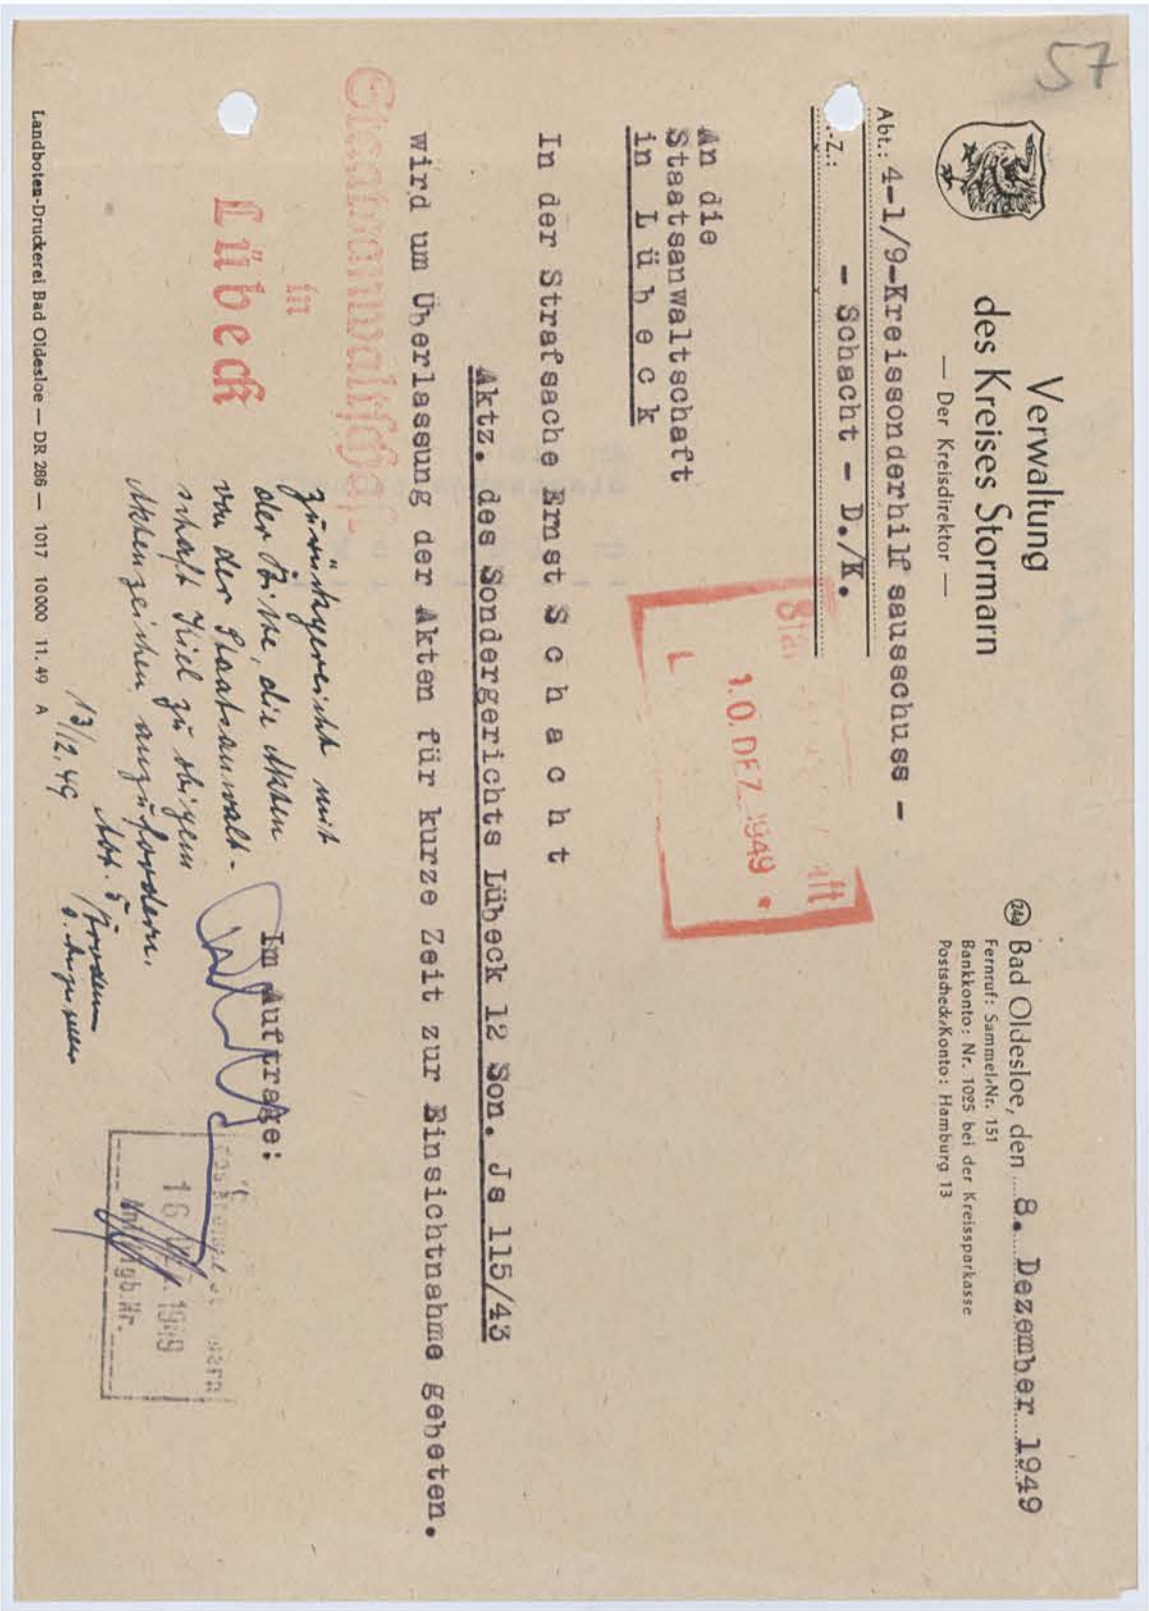 57
Verwaltung
des Kreises Stormarn
— Der Kreisdirektor —
24a Bad Oldesloe, den 8. Dezember 1949
Fernruf: Sammel-Nr. 151
Bankkonto: Nr. 1025 bei der Kreissparkasse
Postscheck-Konto: Hamburg 13
Abt.: 4-1/9-Kreissonderhilfsausschuss -
.-Z.: - Schacht - D./K.
An die
Staatsanwaltschaft
in Lübeck
1.0. DEZ. 1949
L
In der Strafsache Ernst S c h a c h t
Aktz. des Sondergerichts Lübeck 12 Son. Js 115/43
wird um Überlassung der Akten für kurze Zeit zur Einsichtnahme gebeten.
Staatsanwaltschaft
in
Lübeck
Im Auftrage:
zurückgereicht mit
der Bitte, die Akten
von der Staatsanwalt-
schaft Kiel zu obigem
Aktenzeichen anzufordern.
Abt. 5
13/12.49
16. 1949
Landboten-Druckerei Bad Oldesloe — DR 286 — 1017 10000 11.49 A